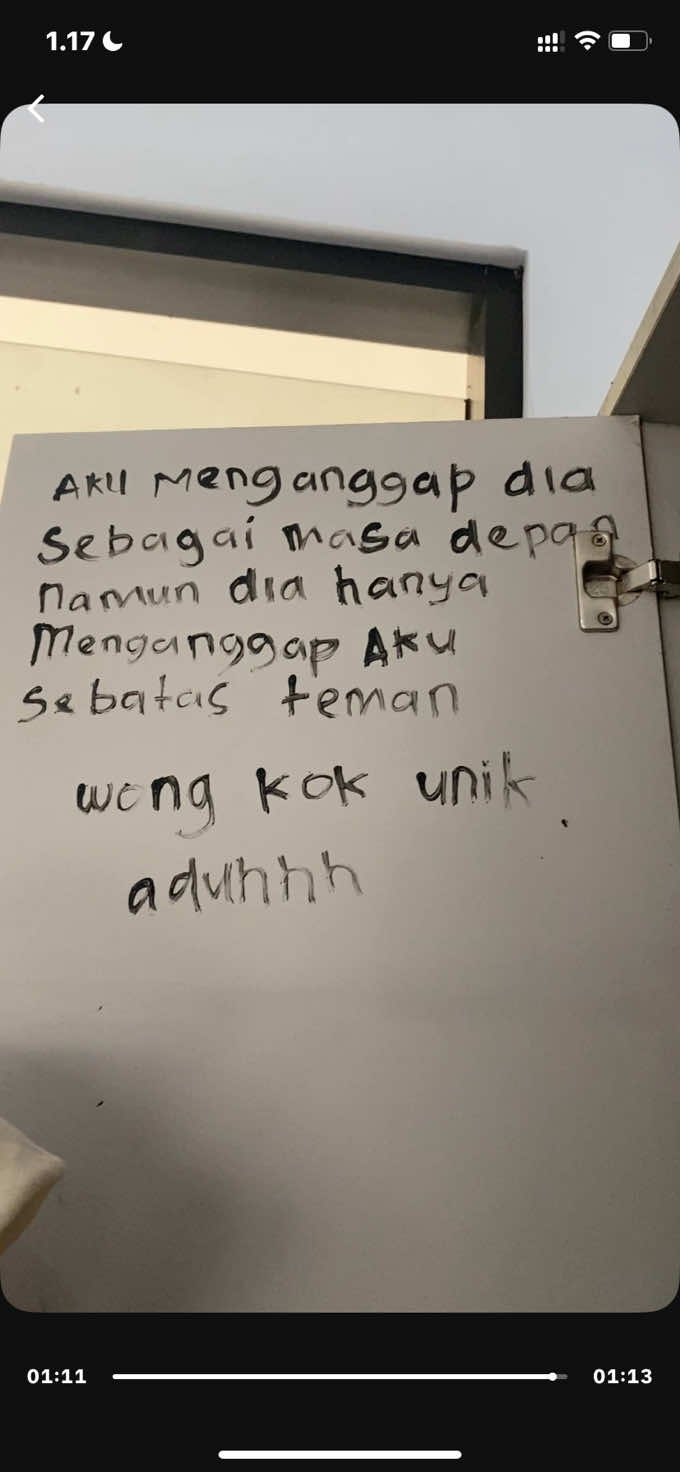 1.17
AKU Menganggap dia
Sebagai masa depan
namun dia hanya
Menganggap AKU
Sebatas teman
wong kok unik.
aduhhh
01:11
01:13